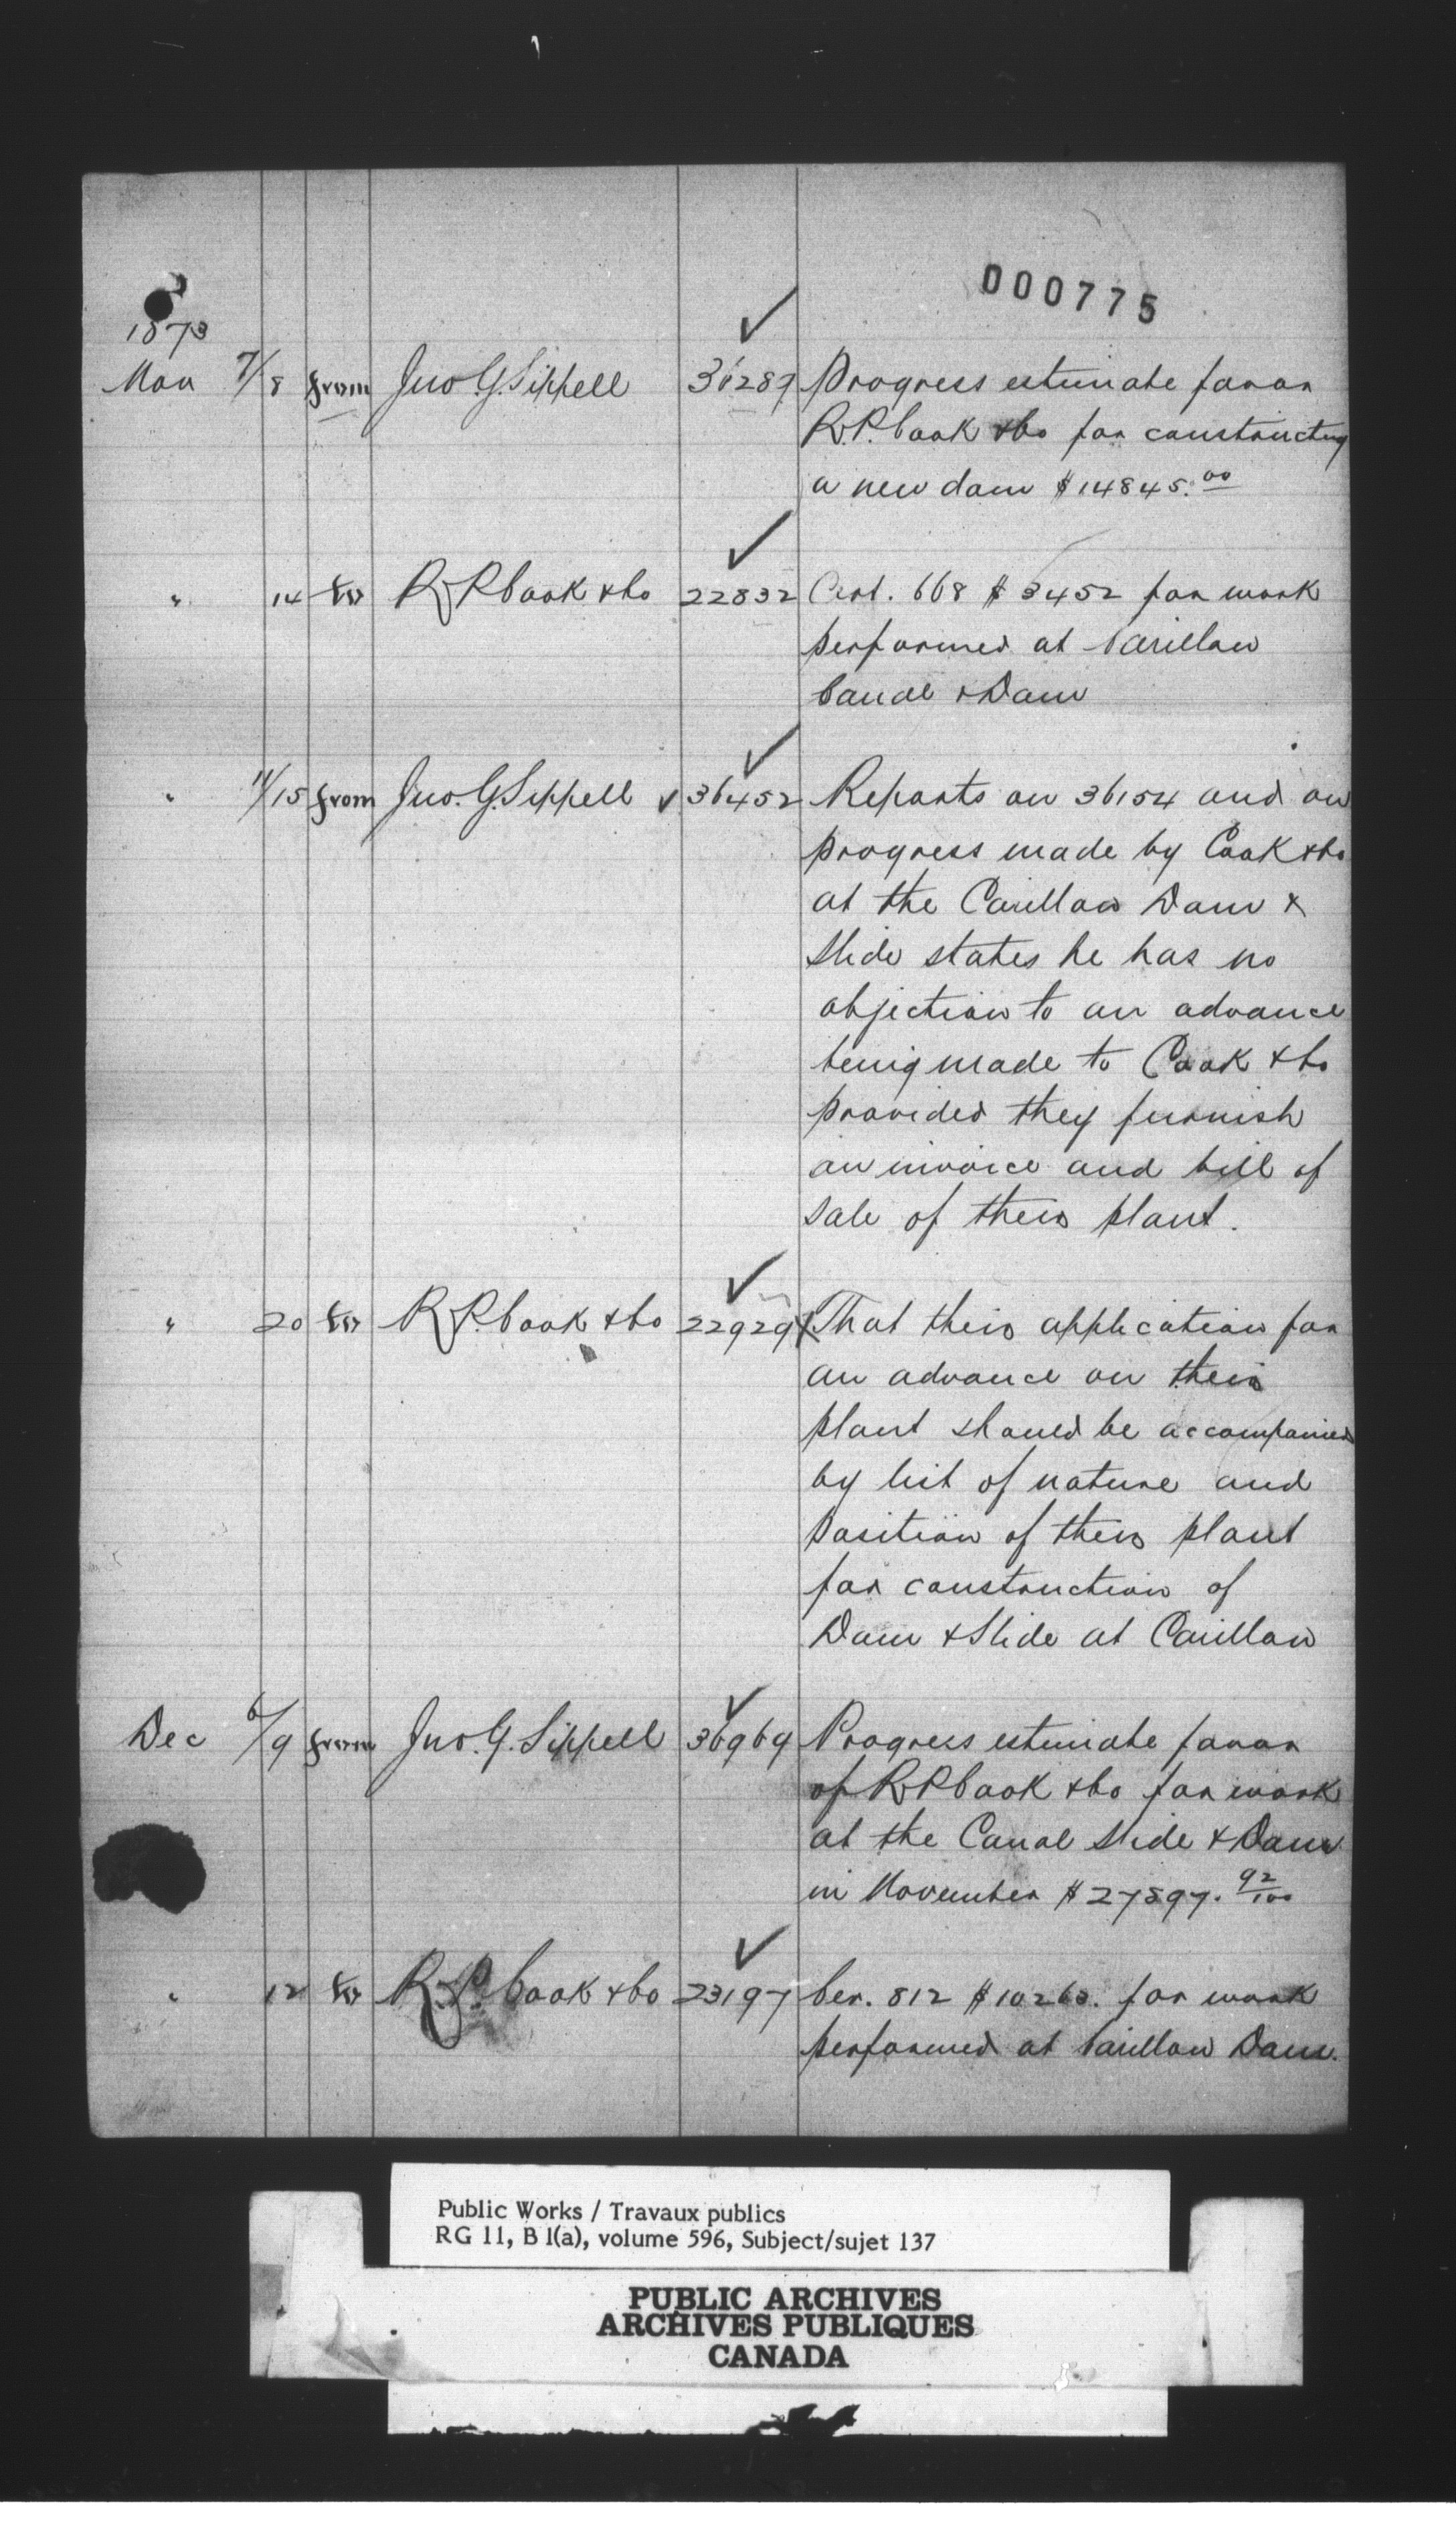 000775
1873
Nov 7/8 from Jno. G. Sippell 36289 Progress estimate favor
R.P. Cook & Co for constructing
a new dam $14845.00
" 14 to R P Cook & Co 22832 Cert. 668 $3452 for work
performed at Carillon
Canal & Dam
" 11/15 from Jno. G. Sippell 36452 Reports on 36154 and on
progress made by Cook & Co
at the Carillon Dam &
Slide states he has no
objection to an advance
being made to Cook & Co
provided they furnish
an invoice and bill of
sale of their plant.
" 20 to R.P. Cook & Co 22929 That their application for
an advance on their
plant should be accompanied
by list of nature and
position of their plant
for construction of
Dam & Slide at Carillon
Dec 6/9 from Jno. G. Sippell 36969 Progress estimate favor
of R P Cook & Co for work
at the Canal Slide & Dam
in November $27897. 92/100
" 12 to R.P. Cook & Co 23197 Cer. 812 $10263. for work
performed at Carillon Dam.
Public Works / Travaux publics
RG 11, B 1(a), volume 596, Subject/sujet 137
PUBLIC ARCHIVES
ARCHIVES PUBLIQUES
CANADA